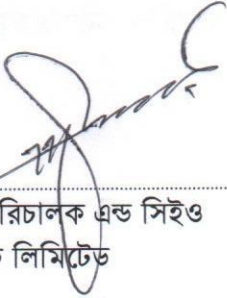 রিচালক এন্ড সিইও
লিমিটেড